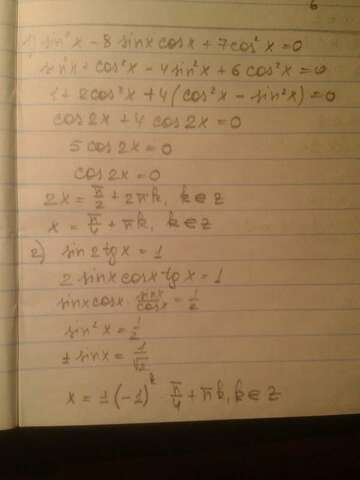 6
1) sin²x - 8 sinx cosx + 7cos²x = 0
sin²x + cos²x - 4 sin²x + 6 cos²x = 0
1 + 2cos²x + 4(cos²x - sin²x) = 0
cos2x + 4 cos2x = 0
5 cos2x = 0
cos2x = 0
2x = π/2 + 2πk, k ∈ z
x = π/4 + πk, k ∈ z
2) sin 2 tg x = 1
2 sinx cosx tg x = 1
sinx cosx · sinx/cosx = 1/2
sin²x = 1/2
± sinx = 1/√2
x = ± (-1)ᵏ π/4 + πk, k ∈ z